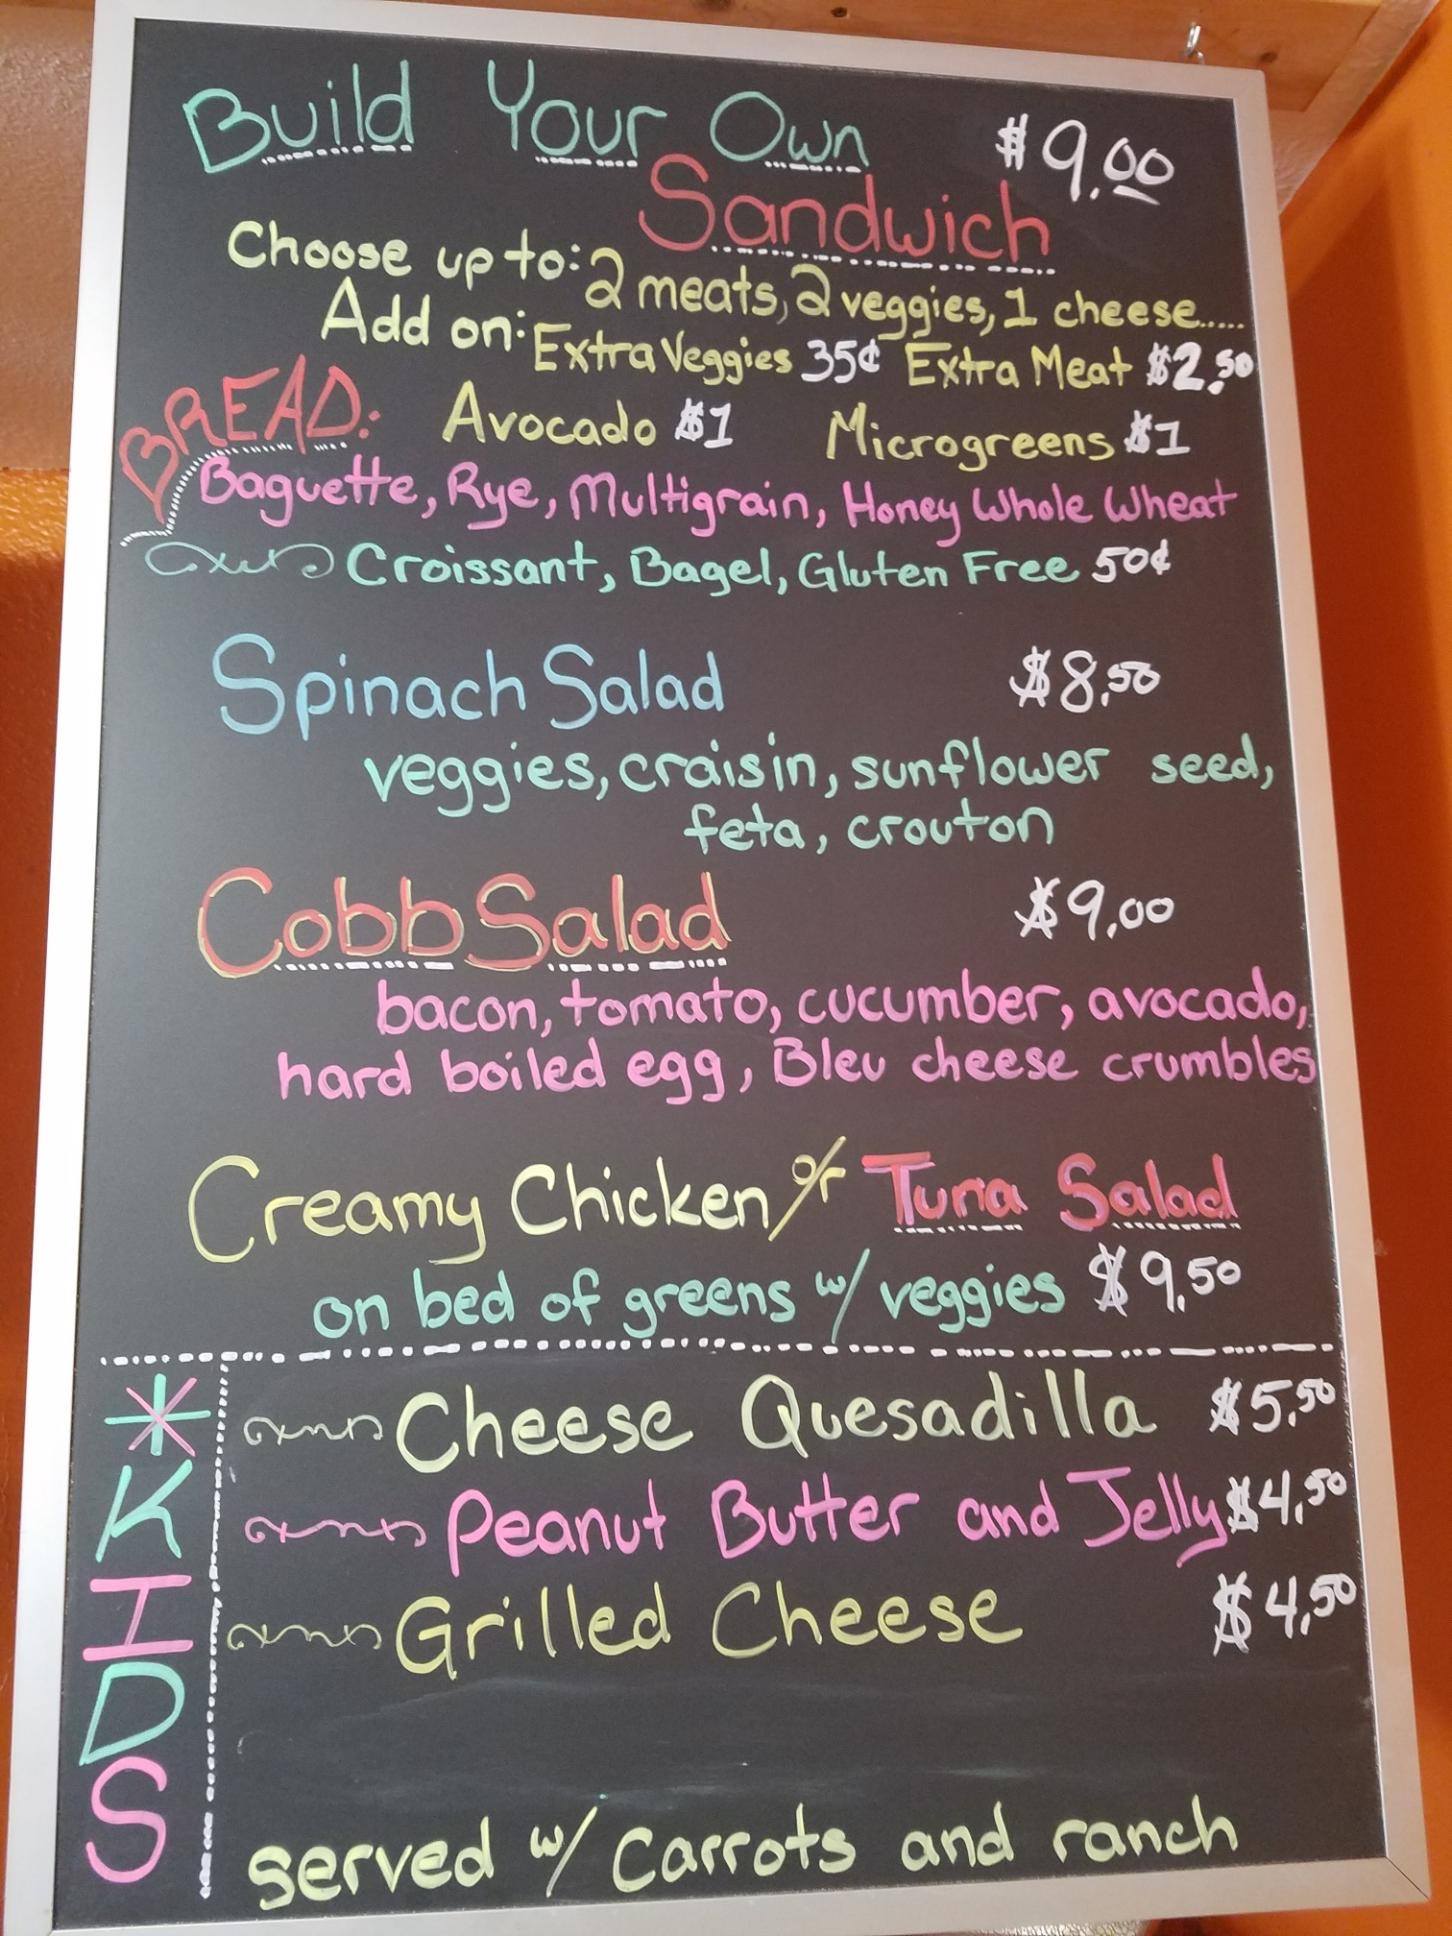 Build Your Own $9.00
Sandwich
Choose up to: 2 meats, 2 veggies, 1 cheese.....
Add on: Extra Veggies 35¢ Extra Meat $2.50
BREAD: Avocado $1 Microgreens $1
Baguette, Rye, Multigrain, Honey Whole Wheat
Croissant, Bagel, Gluten Free 50¢
Spinach Salad $8.50
veggies, craisin, sunflower seed,
feta, crouton
Cobb Salad $9.00
bacon, tomato, cucumber, avocado,
hard boiled egg, Bleu cheese crumbles
Creamy Chicken or Tuna Salad
on bed of greens w/ veggies $9.50
*KIDS
Cheese Quesadilla $5.50
Peanut Butter and Jelly $4.50
Grilled Cheese $4.50
served w/ Carrots and ranch